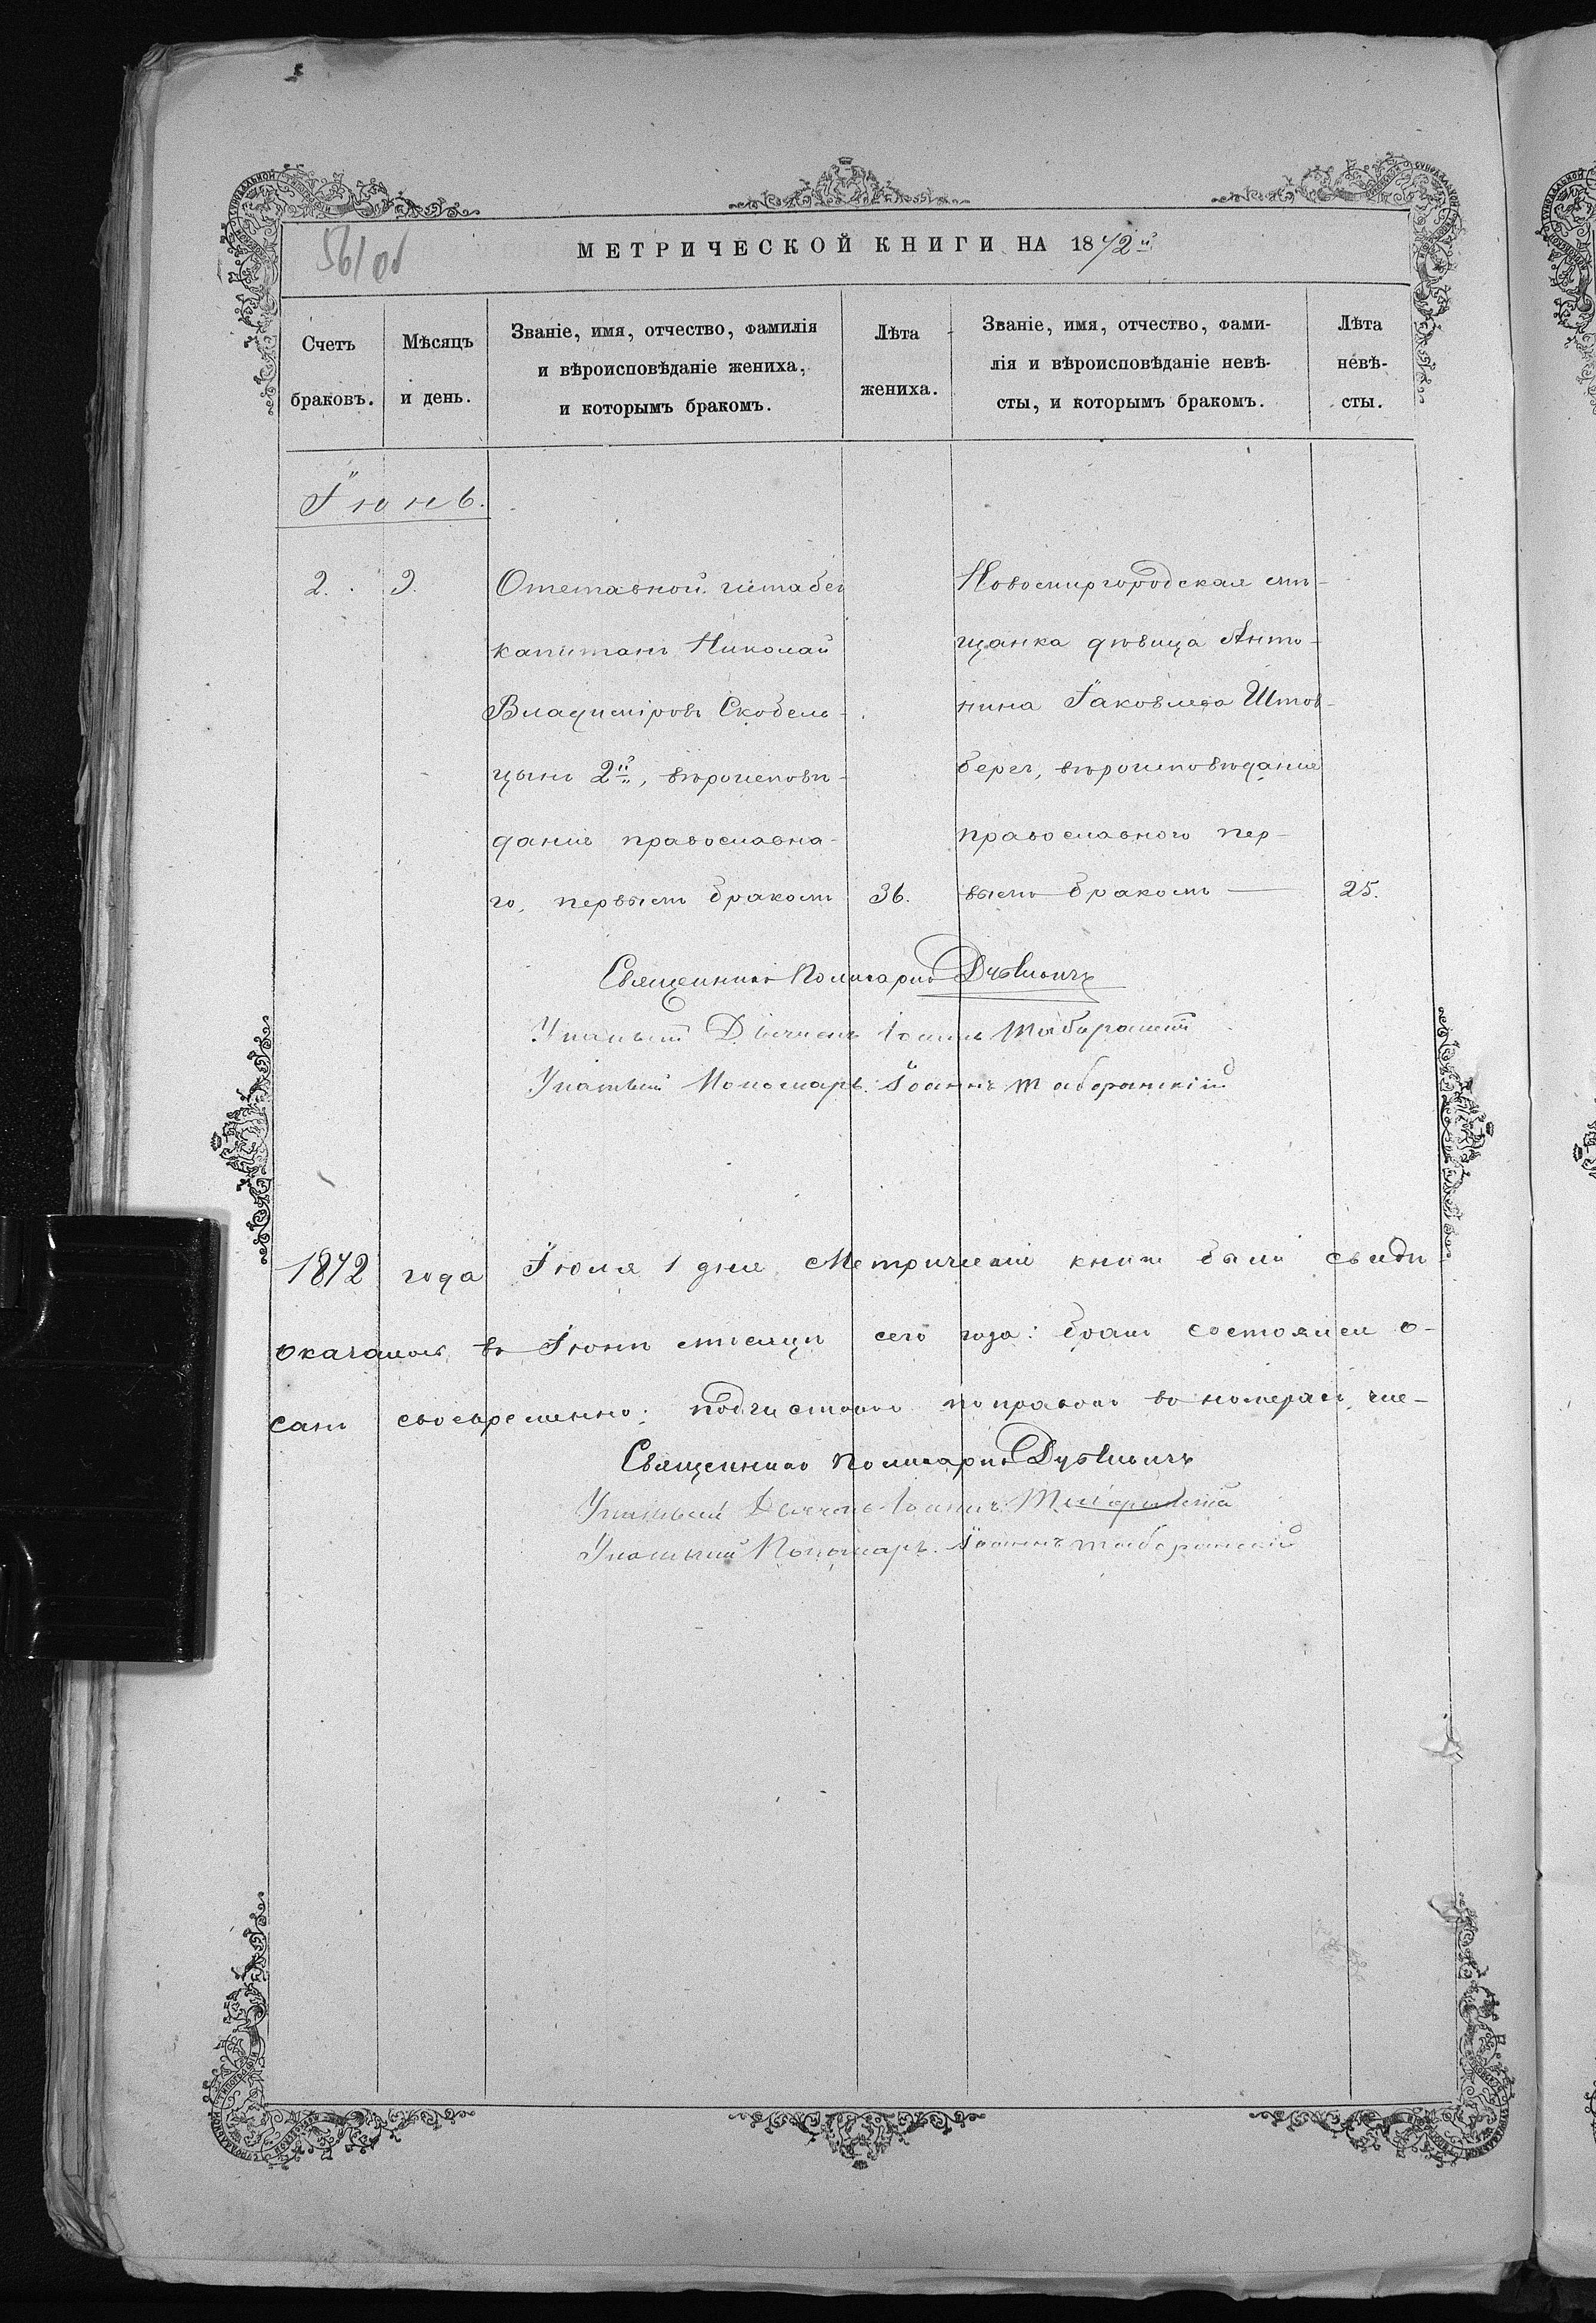 МЕТРИЧЕСКОЙ КНИГИ НА 1872й
Счетъ браковъ.
Мѣсяцъ и день.
Званіе, имя, отчество, фамилія
и вѣроисповѣданіе жениха,
и которымъ бракомъ.
Лѣта жениха.
Званіе, имя, отчество, фами-
лія и вѣроисповѣданіе невѣ-
сты, и которымъ бракомъ.
Лѣта невѣ-
сты.
Іюнь.
2. 9.
Отставной штабсъ
капитанъ Николай
Владиміровъ Скобель-
цынъ 2й, вѣроисповѣ-
данія православна-
го, первымъ бракомъ
36.
Новомиргородская мѣ-
щанка дѣвица Анто-
нина Іаковлева Штов-
бергъ, вѣроисповѣданія
православного пер-
вымъ бракомъ —
25.
Священникъ Поликарпъ
Дьячекъ Іоаннъ
Пономарь Іоаннъ Таборанскій
1872 года Іюля 1 дня Метрическія книги были свидѣ
въ Іюнѣ мѣсяцѣ сего года: бракъ состоялся
санъ своевременно; подчистокъ поправокъ въ номерахъ
Священникъ Поликарпъ
Дьячекъ Іоаннъ
Пономарь Іоаннъ Таборанскій